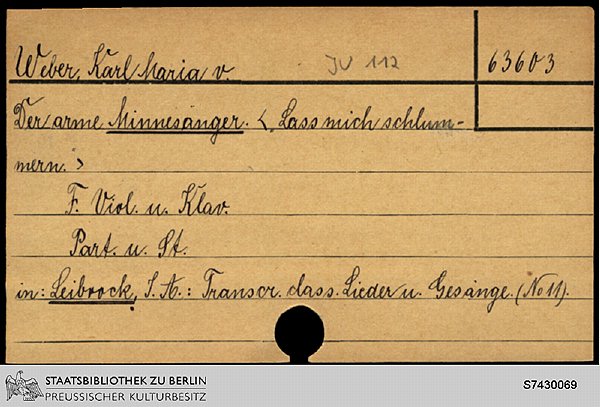 Weber, Karl Maria v. JV 112 63603
Der arme Minnesänger. < Lass mich schlum-
mern. >
F. Viol. u. Klav.
Part. u. St.
in: Leibrock, J. A.: Transcr. class. Lieder u. Gesänge. (No 11).
STAATSBIBLIOTHEK ZU BERLIN
PREUSSISCHER KULTURBESITZ
S7430069